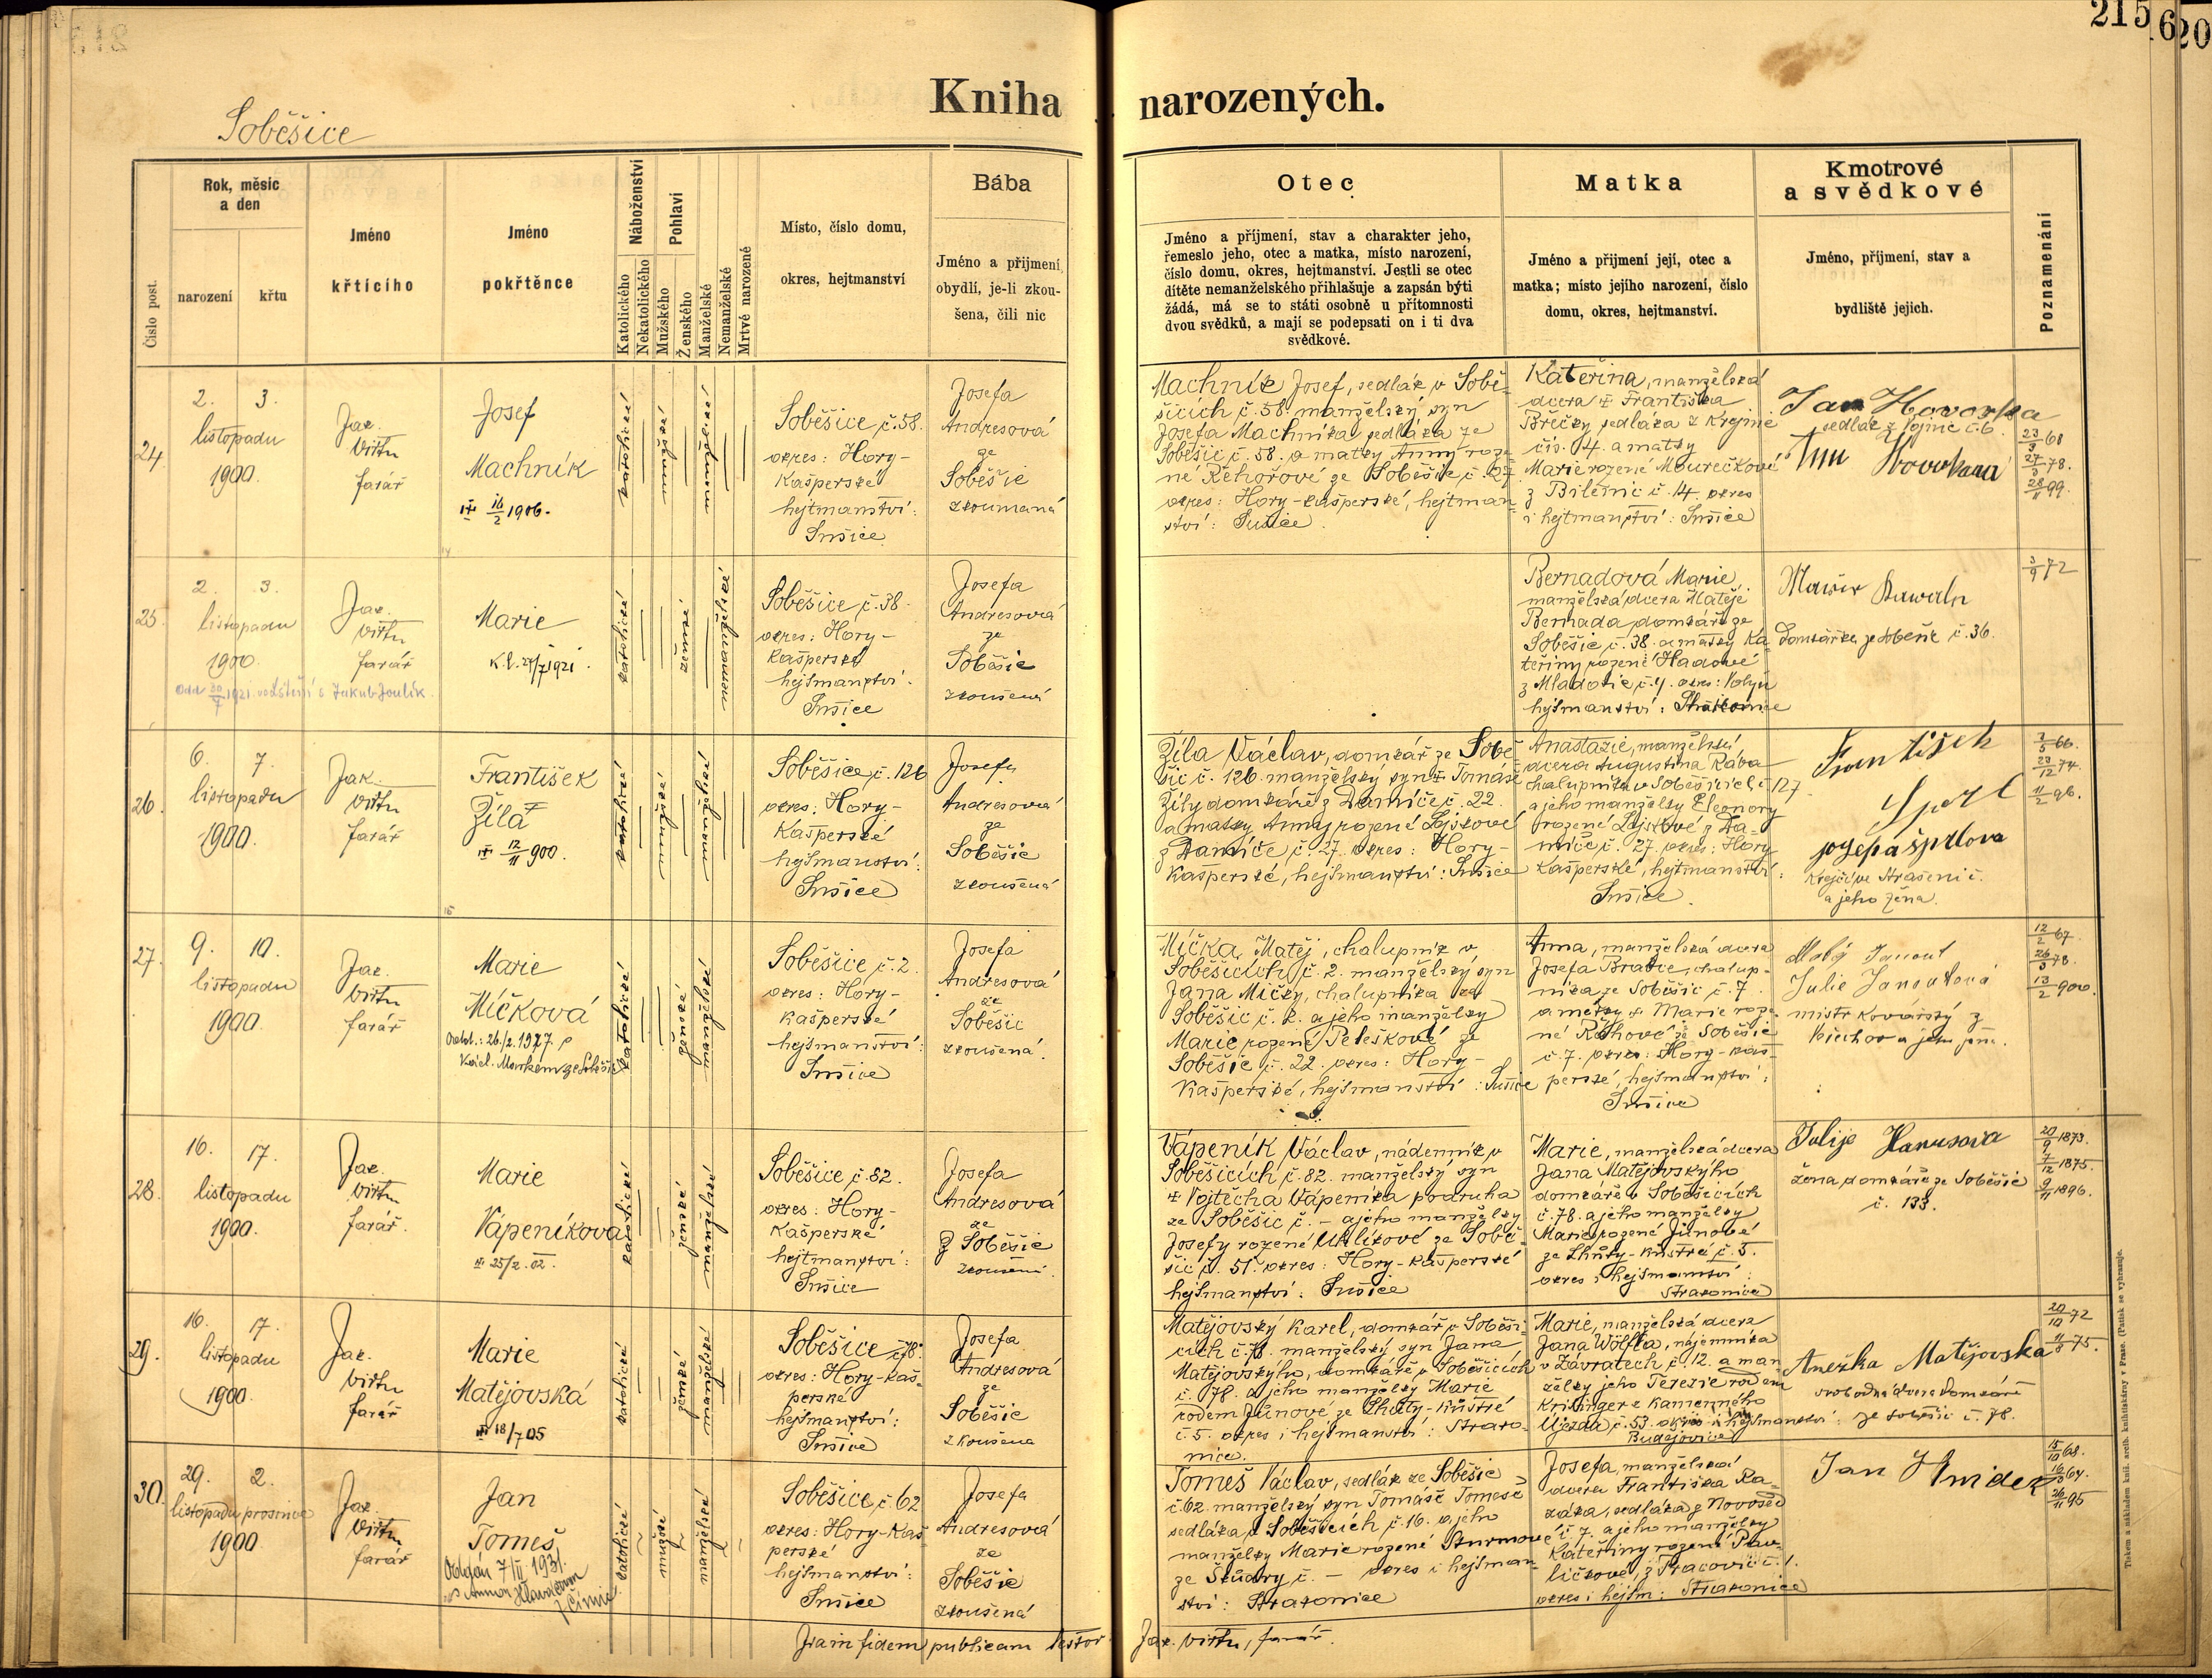 215
Kniha narozených.
Soběšice
Číslo post.
Rok, měsíc
a den
narození
křtu
Jméno
křtícího
Jméno
pokřtěnce
Náboženství
Katolického
Nekatolického
Pohlaví
Mužského
Ženského
Manželské
Nemanželské
Mrtvé narozené
Místo, číslo domu,
okres, hejtmanství
Bába
Jméno a přijmení,
obydlí, je-li zkou-
šena, čili nic
Otec
Jméno a příjmení, stav a charakter jeho,
řemeslo jeho, otec a matka, místo narození,
číslo domu, okres, hejtmanství. Jestli se otec
dítěte nemanželského přihlašuje a zapsán býti
žádá, má se to státi osobně u přítomnosti
dvou svědků, a mají se podepsati on i ti dva
svědkové.
Matka
Jméno a přijmení její, otec a
matka; místo jejího narození, číslo
domu, okres, hejtmanství.
Kmotrové
a svědkové
Jméno, příjmení, stav a
bydliště jejich.
Poznamenání
24
2. 3.
listopadu
1900.
Jak.
Virtu
farář
Josef
Machník
16/2 1906.
katolické
mužské
manželské
Soběšice č. 58.
okres: Hory-
Kašperské
hejtmanství:
Sušice
Josefa
Andresová
ze
Soběšic
zkoumaná
Machník Josef, sedlák v Sobě-
šicích č. 58. manželský syn
Josefa Machníka sedláka ze
Soběšic č. 58. a matky Anny roze-
né Řehořové ze Soběšic č. 27
okres: Hory-Kašperské, hejtman-
ství: Sušice.
Kateřina, manželská
dcera Františka
sedláka z Krejnic
čís. 4. a matky
Marie rozené Mourečkové
č. 14. okres
i hejtmanství: Sušice
Jan Hovorka
sedlák z č. 6.
23/3 68
27/3 78.
28/11 99.
25.
2. 3.
listopadu
1900.
Jak.
Virtu
farář
Marie
K.l. 27/7 1921.
katolické
ženské
nemanželské
Soběšice č. 38.
okres: Hory-
Kašperské
hejtmanství.
Sušice
Josefa
Andresová
ze
Soběšic
zkoušená
Bernadová Marie,
manželská dcera Matěje
Bernada domkáře ze
Soběšic č. 38. a matky Ka-
teřiny rozené Hadové
z Mladotic č. 4. okres: Volyň
hejtmanství: Strakonice
Marie
Domkářka ze Soběšic č. 36.
3/9 72
26
6. 7.
listopadu
1900.
Jak.
Virtu
farář
František
Žíla
12/11 900.
katolické
mužské
manželské
Soběšice, č. 126
okres: Hory-
Kašperské
hejtmanství:
Sušice
Josefa
Andresová
ze
Soběšic
zkoušená
Žíla Václav, domkář ze Sobě-
šic č. 126. manželský syn Tomáše
Žíly domkáře z Damíče č. 22.
a matky Anny rozené Lojskové
z Damíče č. 27. okres: Hory-
Kašperské, hejtmanství: Sušice
Anastazie, manželská
dcera Augustina Rába
chalupníka v Soběšicích č. 127
a jeho manželky Eleonory
rozené Lojskové z Da-
míče č. 27. okres: Hory
Kašperské, hejtmanství:
Sušice.
František
krejčí ve Strašeni č.
a jeho žena.
3/5 66.
23/12 74.
11/2 96.
27.
9. 10.
listopadu
1900.
Jak.
Virtu
farář
Marie
Míčková
Odd.: 26./2. 1927. s
Václ. Markem ze Soběšic
katolické
ženské
manželské
Soběšice č. 2.
okres: Hory-
Kašperské
hejtmanství:
Sušice
Josefa
Andresová
ze
Soběšic
zkoušená.
Míčka Matěj, chalupník v
Soběšicích č. 2. manželský syn
Jana Míčky, chalupníka ze
Soběšic č. 2. a jeho manželky
Marie rozené Peleškové ze
Soběšic č. 22. okres: Hory-
Kašperské, hejtmanství: Sušice
Anna, manželská dcera
Josefa Brabce, chalup-
níka ze Soběšic č. 7.
a matky Marie roze-
né ze Soběšic
č. 7. okres: Hory-Kaš-
perské, hejtmanství:
Sušice
Julie
mistr kovářský z
12/2 67.
26/3 78.
13/2 900.
28.
16. 17.
listopadu
1900.
Jak.
Virtu
farář.
Marie
Vápeníková
25/2. 02.
katolické
ženské
manželské
Soběšice č. 82.
okres: Hory-
Kašperské
hejtmanství:
Sušice
Josefa
Andresová
ze
Soběšic
zkoušená.
Vápeník Václav, nádenník v
Soběšicích č. 82. manželský syn
Vojtěcha Vápeníka podruha
ze Soběšic č. – a jeho manželky
Josefy rozené Uhlíkové ze Sobě-
šic č. 51. okres: Hory-Kašperské
hejtmanství: Sušice
Marie, manželská dcera
Jana Matějovskýho
domkáře v Soběšicích
č. 78. a jeho manželky
Marie rozené Jůnové
ze Lhoty-Kustré č. 5.
okres i hejtmanství:
Strakonice
Julije Hanusova
žena domkáře ze Soběšic
č. 133.
20/9 1873.
7/12 1875.
9/11 1896.
29.
16. 17.
listopadu
1900.
Jak.
Virtu
farář
Marie
Matějovská
18/7 05
katolické
ženské
manželské
Soběšice č. 78.
okres: Hory-Kaš-
perské
hejtmanství:
Sušice
Josefa
Andresová
ze
Soběšic
zkoušena
Matějovský Karel, domkář v Soběši-
cích č. 78. manželský syn Jana
Matějovskýho, domkáře v Soběšicích
č. 78. a jeho manželky Marie
rodem Jůnové ze Lhoty-Kustré
č. 5. okres i hejtmanství: Strako-
nice.
Marie, manželská dcera
Jana Wölfla, nájemníka
v Závratech č. 12. a man
želky jeho Terezie rodem
Kristinger z Kamenného
Újezda č. 53. okres i hejtmanství:
Budějovice
Anežka Matějovska
svobodná dcera domkáře
ze Soběšic č. 78.
20/10 72
11/8 75.
30.
29. 2.
listopadu prosince
1900.
Jak.
Virtu
farář
Jan
Tomeš
Oddán 7/II 1931.
katolické
mužské
manželské
Soběšice č. 62
okres: Hory-Kaš
perské
hejtmanství:
Sušice
Josefa
Andresová
ze
Soběšic
zkoušená
Tomeš Václav, sedlák ze Soběšic
č. 62. manželský syn Tomáše Tomeše
sedláka v Soběšicích č. 16. a jeho
manželky Marie rozené Sturmové
ze Škudry č. – okres i hejtman-
ství: Strakonice
Josefa, manželská
dcera Františka Ka-
záka, sedláka z Novosed
č. 7. a jeho manželky
Kateřiny rozené Pav-
ličkové, z Pracovic č. 1.
okres i hejtm: Strakonice
Jan
15/10 68.
26/11 95
fidem publicam testor Jak. Virtu, farář.